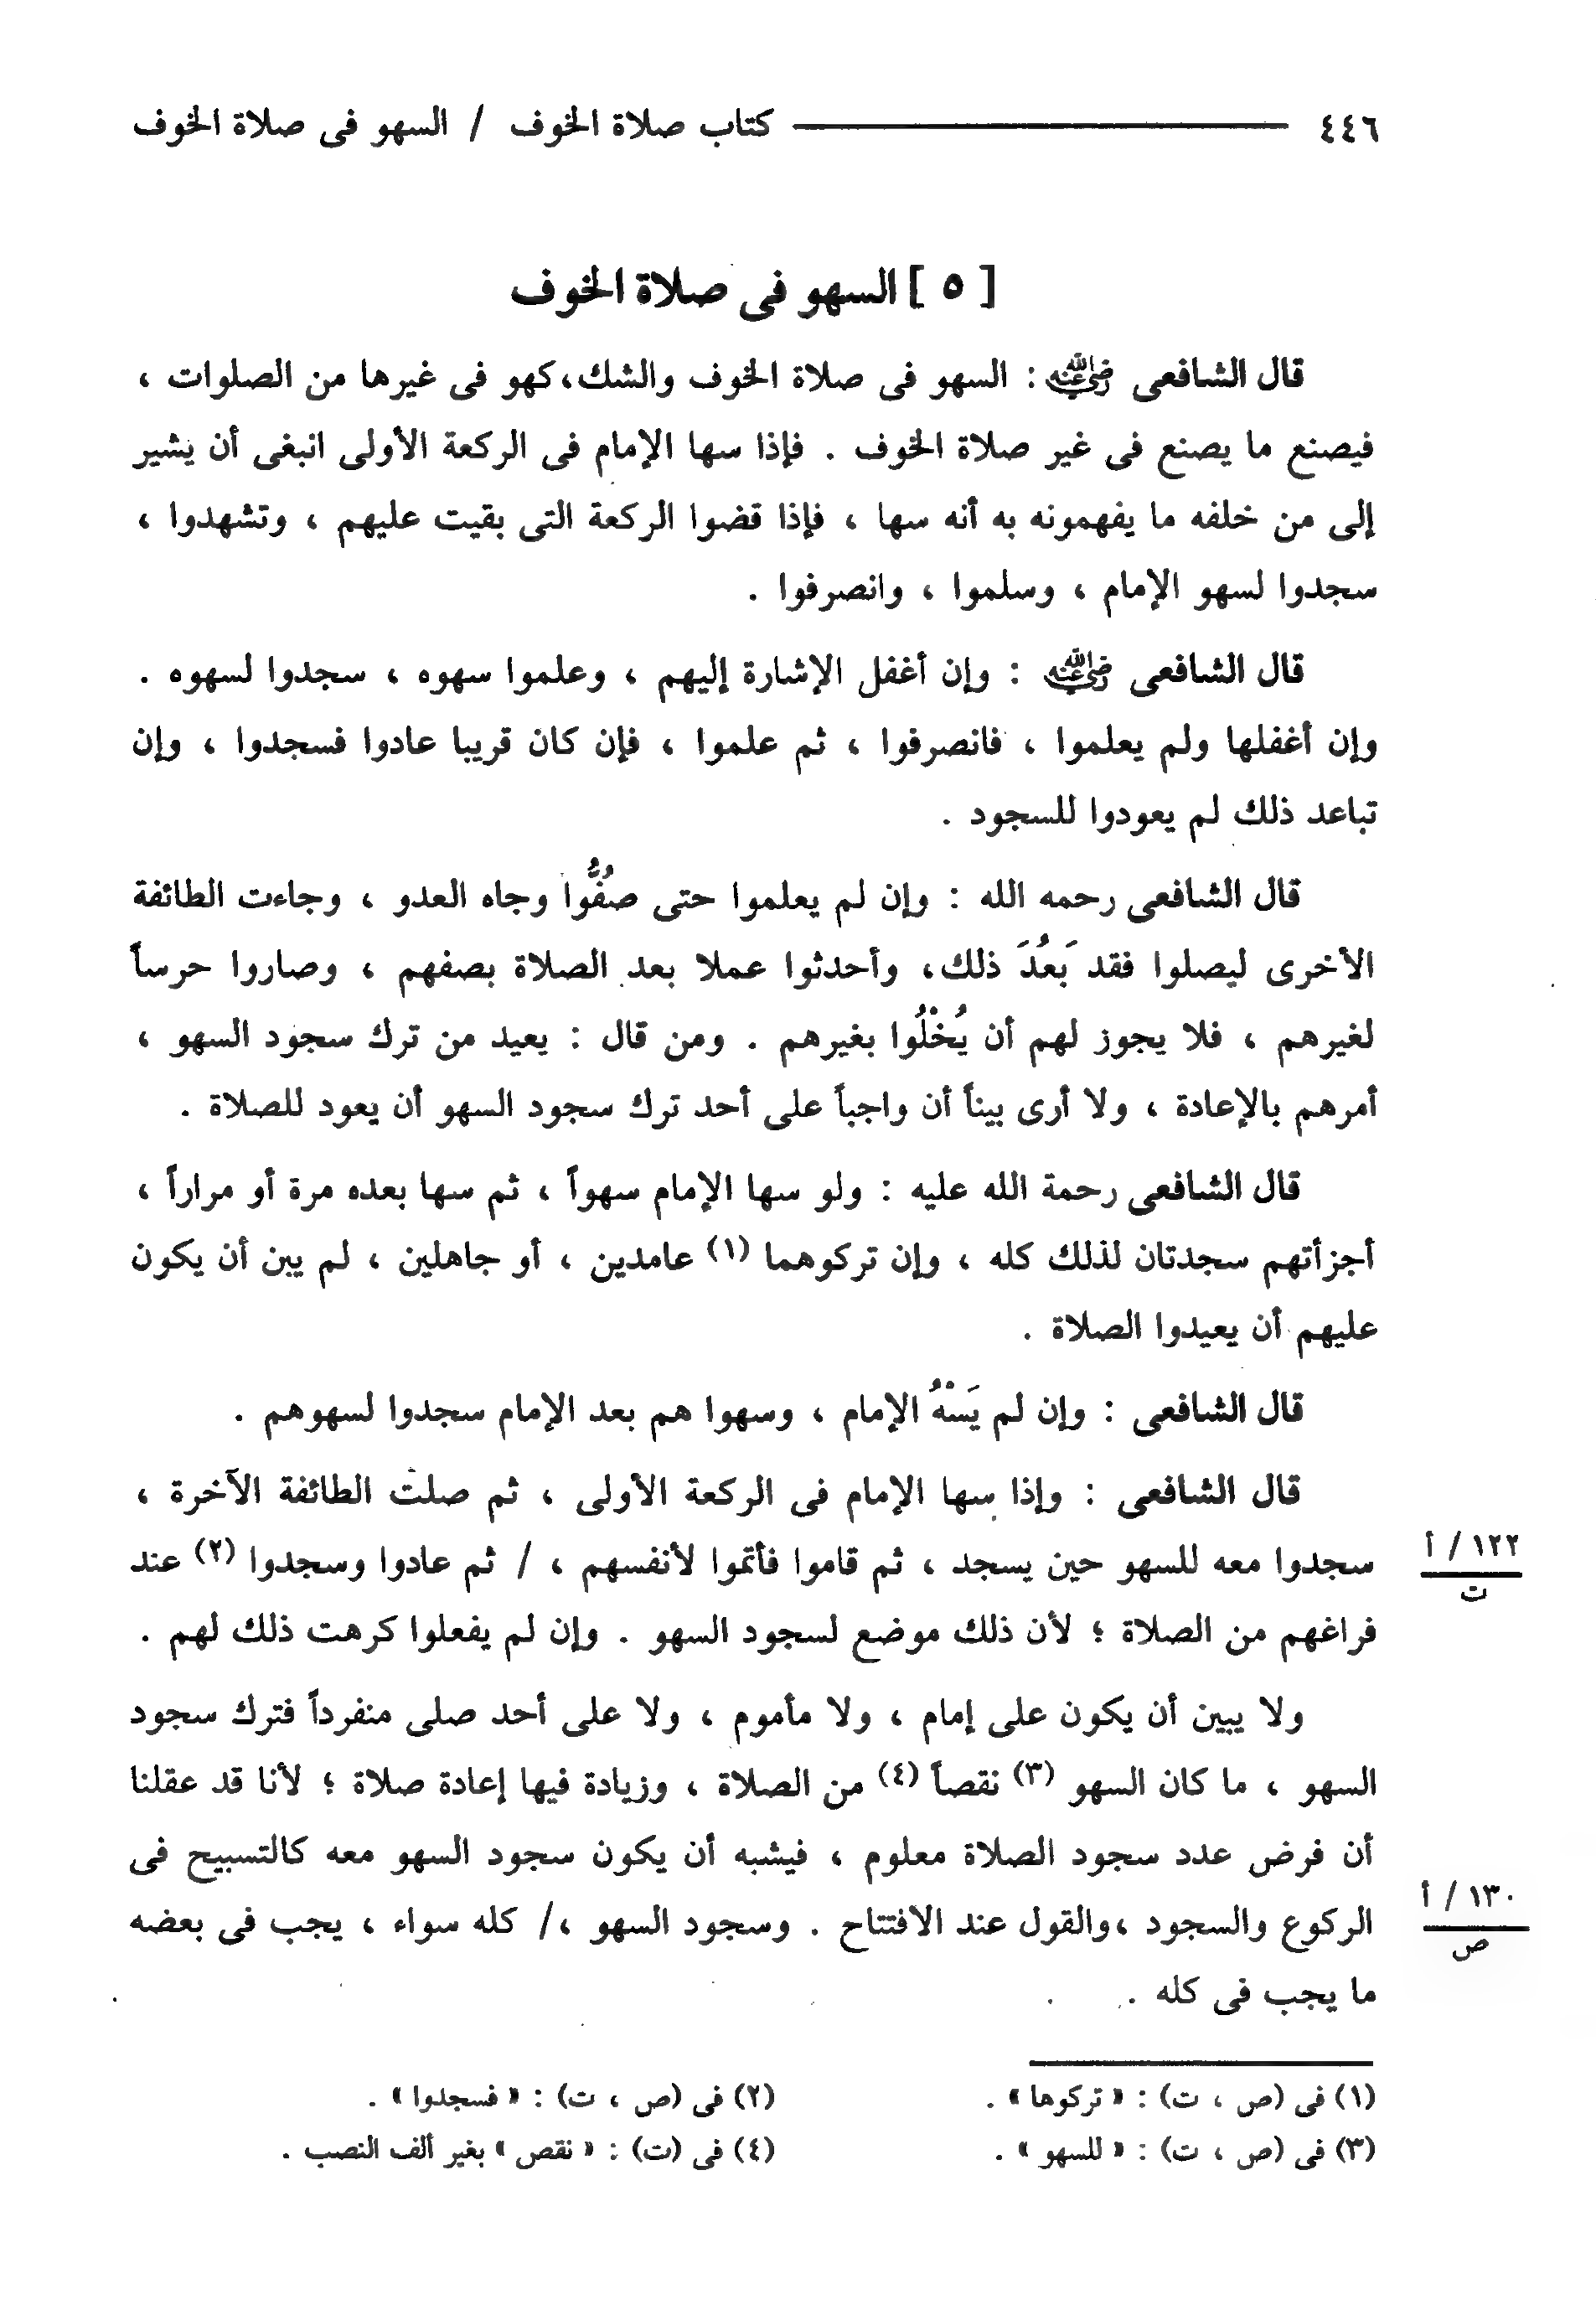 ٤٤٦ كتاب صلاة الخوف / السهو فى صلاة الخوف
[ ٥ ] السهو فى صلاة الخوف
قال الشافعى رضي الله عنه : السهو فى صلاة الخوف والشك، كهو فى غيرها من الصلوات ،
فيصنع ما يصنع فى غير صلاة الخوف . فإذا سها الإمام فى الركعة الأولى انبغى أن يشير
إلى من خلفه ما يفهمونه به أنه سها ، فإذا قضوا الركعة التى بقيت عليهم ، وتشهدوا ،
سجدوا لسهو الإمام ، وسلموا ، وانصرفوا .
قال الشافعى رضي الله عنه : وإن أغفل الإشارة إليهم ، وعلموا سهوه ، سجدوا لسهوه .
وإن أغفلها ولم يعلموا ، فانصرفوا ، ثم علموا ، فإن كان قريبا عادوا فسجدوا ، وإن
تباعد ذلك لم يعودوا للسجود .
قال الشافعى رحمه الله : وإن لم يعلموا حتى صُفُّوا وجاه العدو ، وجاءت الطائفة
الأخرى ليصلوا فقد بَعُدَ ذلك، وأحدثوا عملا بعد الصلاة بصفهم ، وصاروا حرساً
لغيرهم ، فلا يجوز لهم أن يُخْلُوا بغيرهم . ومن قال : يعيد من ترك سجود السهو ،
أمرهم بالإعادة ، ولا أرى بيناً أن واجباً على أحد ترك سجود السهو أن يعود للصلاة .
قال الشافعى رحمة الله عليه : ولو سها الإمام سهواً ، ثم سها بعده مرة أو مراراً ،
أجزأتهم سجدتان لذلك كله ، وإن تركوهما (١) عامدين ، أو جاهلين ، لم يبن أن يكون
عليهم أن يعيدوا الصلاة .
قال الشافعى : وإن لم يَسْهُ الإمام ، وسهوا هم بعد الإمام سجدوا لسهوهم .
قال الشافعى : وإذا سها الإمام فى الركعة الأولى ، ثم صلت الطائفة الآخرة ،
سجدوا معه للسهو حين يسجد ، ثم قاموا فأتموا لأنفسهم ، / ثم عادوا وسجدوا (٢) عند
١٢٢ / أ
ت
فراغهم من الصلاة ؛ لأن ذلك موضع لسجود السهو . وإن لم يفعلوا كرهت ذلك لهم .
ولا يبين أن يكون على إمام ، ولا مأموم ، ولا على أحد صلى منفرداً فترك سجود
السهو ، ما كان السهو (٣) نقصاً (٤) من الصلاة ، وزيادة فيها إعادة صلاة ؛ لأنا قد عقلنا
أن فرض عدد سجود الصلاة معلوم ، فيشبه أن يكون سجود السهو معه كالتسبيح فى
الركوع والسجود ،والقول عند الافتتاح . وسجود السهو ،/ كله سواء ، يجب فى بعضه
١٣٠ / أ
ص
ما يجب فى كله .
(١) فى (ص ، ت) : « تركوها » .
(٢) فى (ص ، ت) : « فسجدوا » .
(٣) فى (ص ، ت) : « للسهو » .
(٤) فى (ت) : « نقص » بغير ألف النصب .